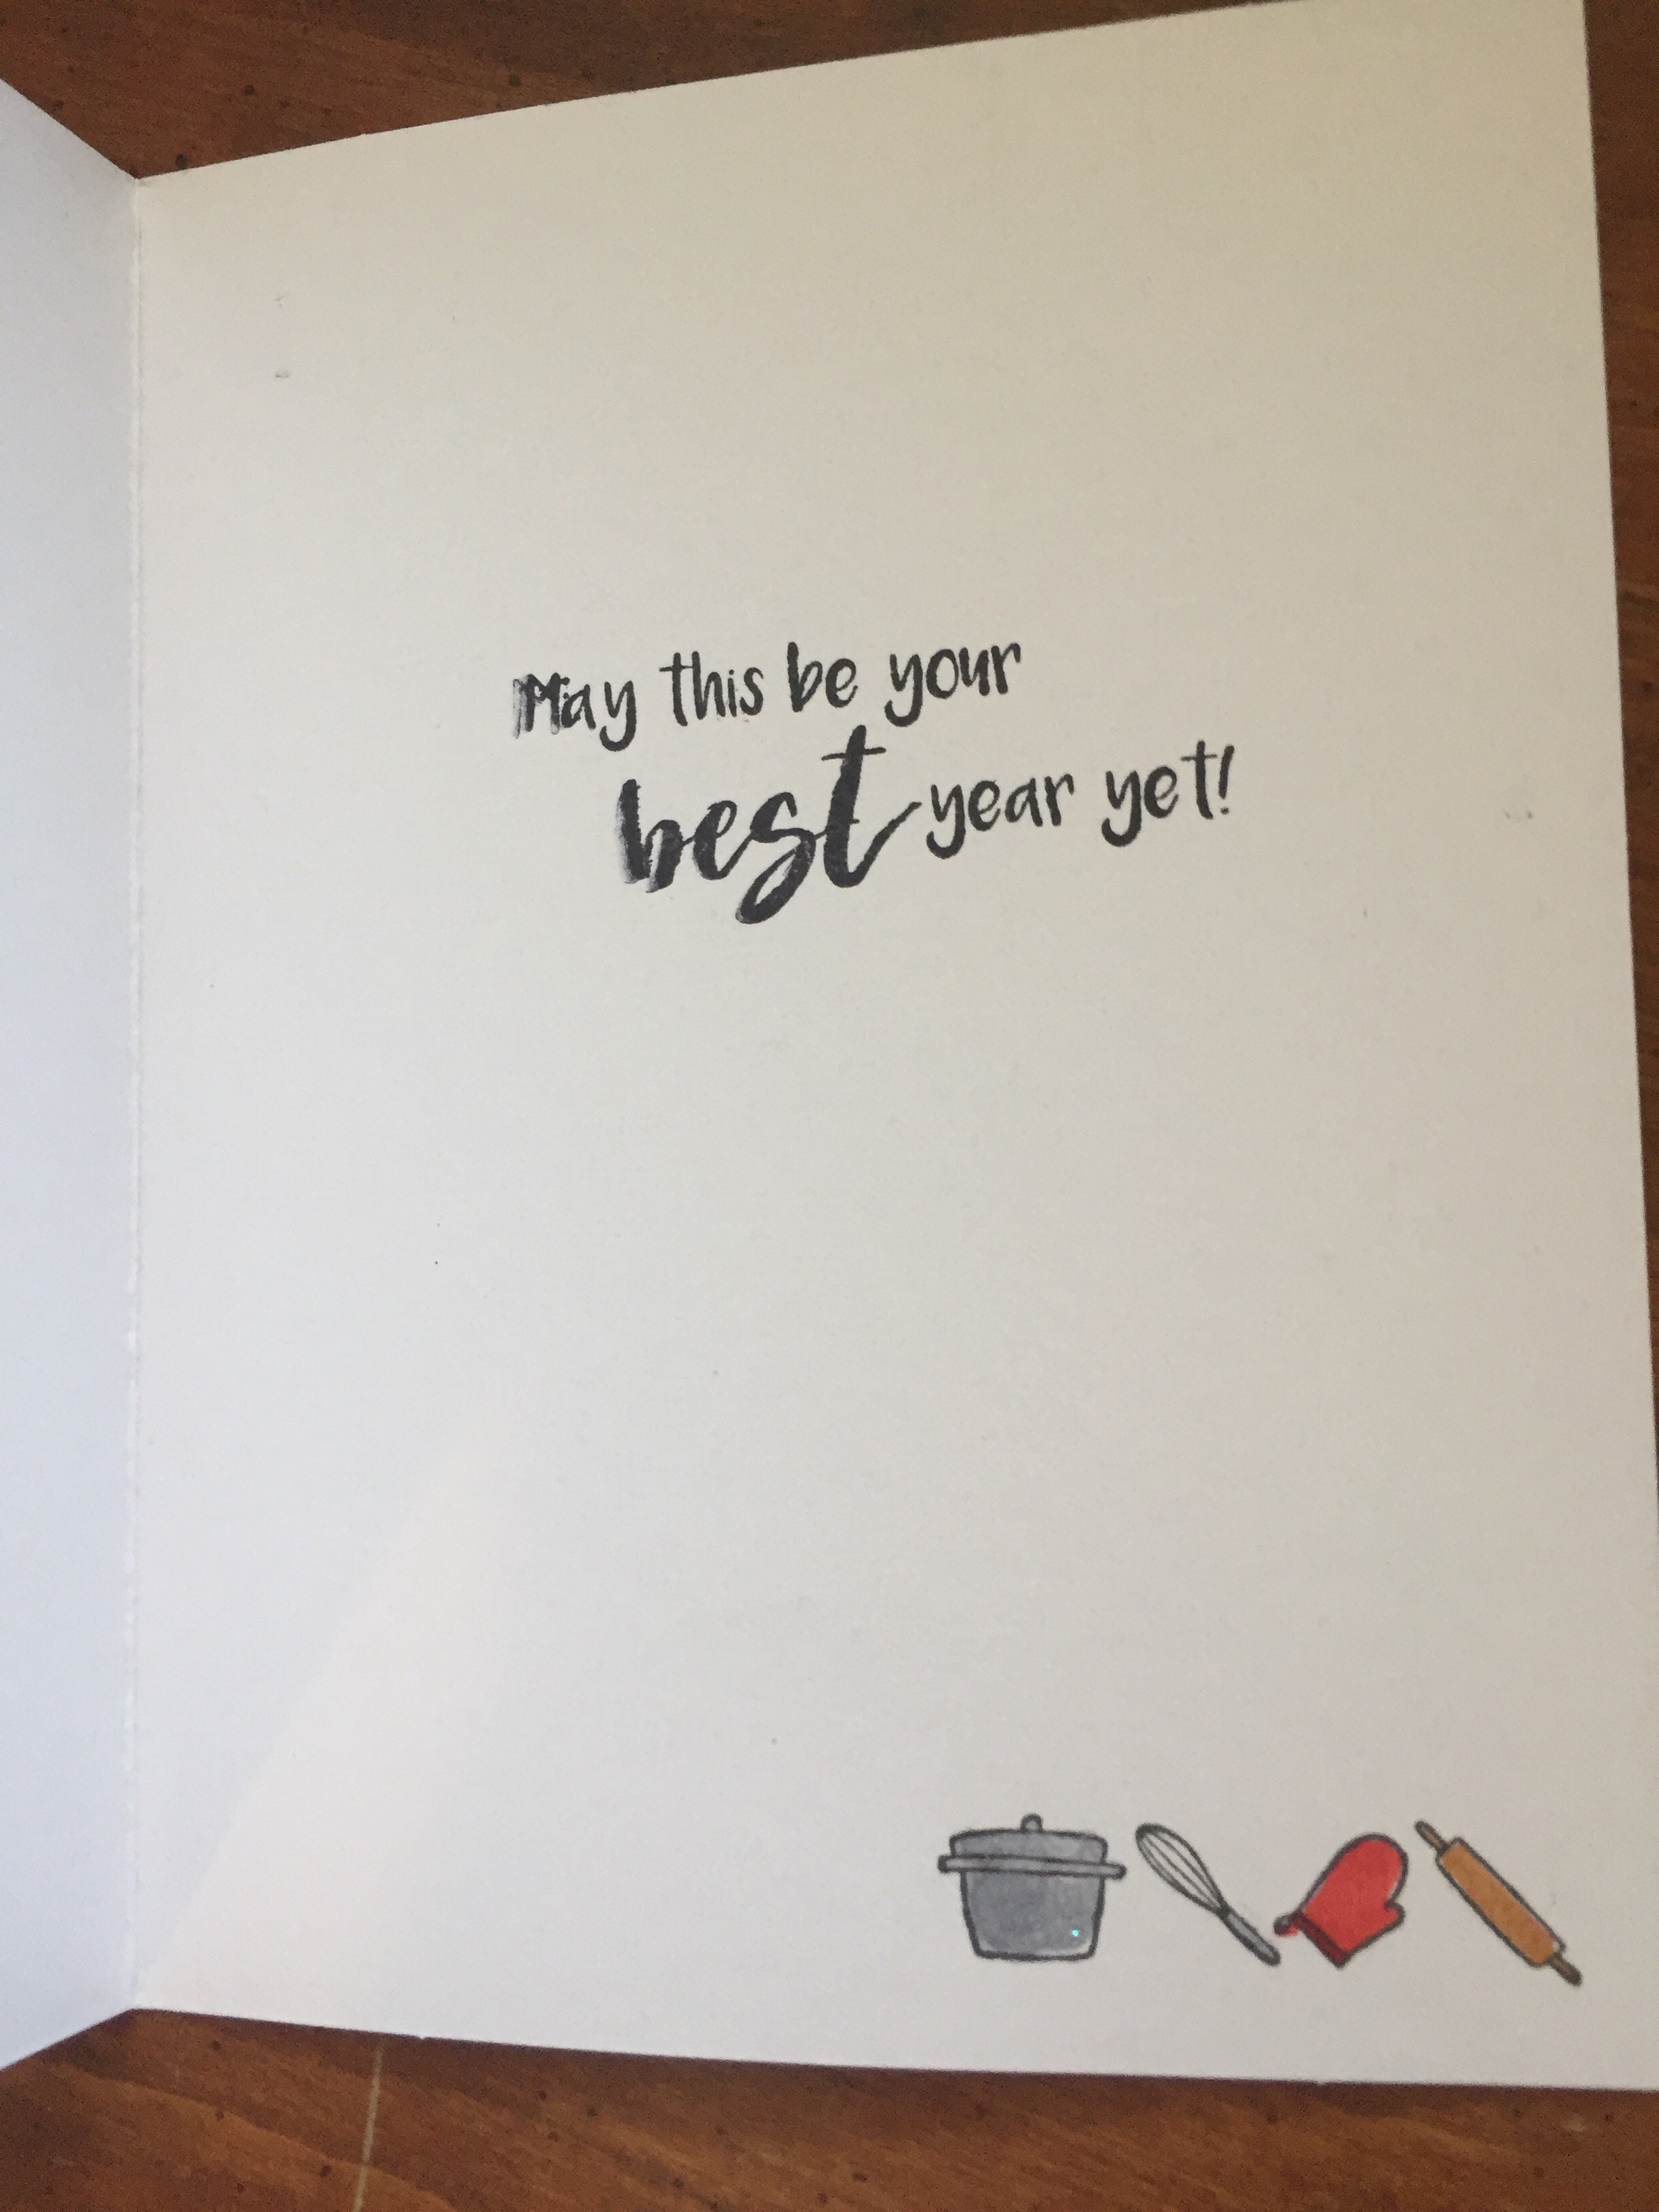 May this be your
best year yet!